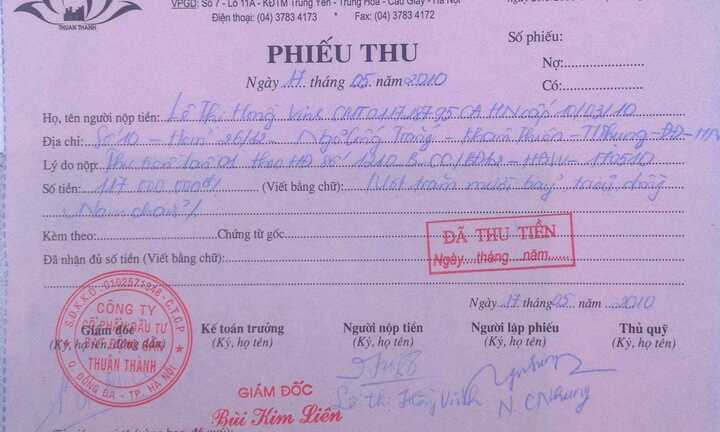 VPGD: Số 7 - Lô 11A - KĐTM Trung Yên - Trung Hòa - Cầu Giấy - Hà Nội
Điện thoại: (04) 3783 4173 * Fax: (04) 3783 4172
THUẬN THÀNH
PHIẾU THU
Số phiếu:
Ngày 17 tháng 05 năm 2010
Nợ:
Có:
Họ, tên người nộp tiền: Lê Thị Hồng Vinh CMT 011718795 CA HN cấp 10/03/10
Địa chỉ: Số 10 - 26/12 - Ngõ - Khâm Thiên - ĐĐ - HN
Lý do nộp: Thu tiền theo HĐ số
Số tiền: 117 000 000đ (Viết bằng chữ): Một trăm mười bảy triệu đồng
Kèm theo: Chứng từ gốc:
ĐÃ THU TIỀN
Đã nhận đủ số tiền (Viết bằng chữ):
Ngày....tháng....năm......
Ngày 17 tháng 05 năm 2010
S.Đ.K.K.D: 0102571948 - C.T.C.P
CÔNG TY
CỔ PHẦN ĐẦU TƯ
BẤT ĐỘNG SẢN
THUẬN THÀNH
Q. ĐỐNG ĐA - TP. HÀ NỘI
Giám đốc Kế toán trưởng Người nộp tiền Người lập phiếu Thủ quỹ
(Ký, họ tên, đóng dấu) (Ký, họ tên) (Ký, họ tên) (Ký, họ tên) (Ký, họ tên)
Lê Thị Hồng Vinh N. C Nhung
GIÁM ĐỐC
Bùi Kim Liên